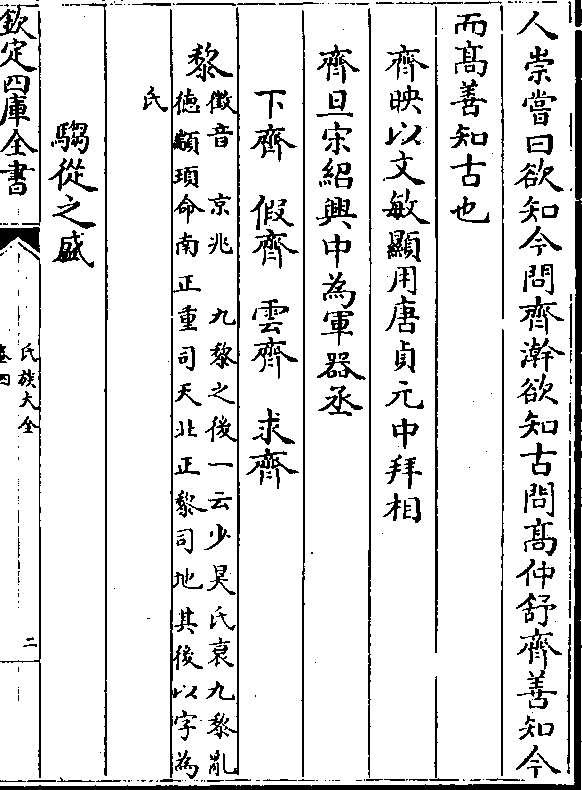 人崇嘗曰欲知今問齊澣欲知古問髙仲舒齊善知今
而髙善知古也
齊映以文敏顯用唐貞元中拜相
齊旦宋紹興中為軍器丞
下齊　假齊　雲齊　求齊
黎
徵音　京兆　九黎之後一云少昊氏衰九黎亂
德顓頊命南正重司天北正黎司地其後以字為
氏
騶從之盛
欽定四庫全書
氏族大全
卷四
二